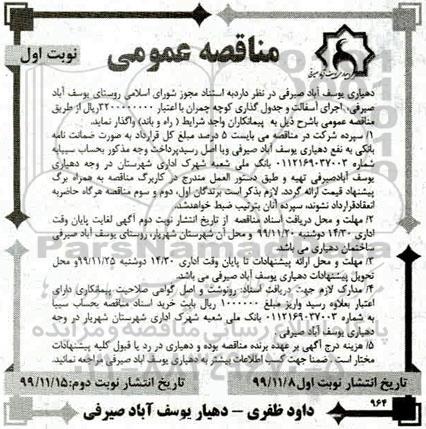 مناقصه عمومی
نوبت اول
دهیاری یوسف آباد صیرفی در نظر دارد به استناد مجوز شورای اسلامی روستای یوسف آباد
صیرفی، اجرای آسفالت و جدول گذاری کوچه چمران با اعتبار ۳۲۰۰۰۰۰۰۰۰ ریال از طریق
مناقصه عمومی با شرح ذیل به پیمانکاران واجد شرایط (راه و باند) واگذار نماید.
۱/ سپرده شرکت در مناقصه می بایست ۵ درصد مبلغ کل قرارداد به صورت ضمانت نامه
بانکی به نفع دهیاری یوسف آباد صیرفی ویا اصل رسید پرداخت وجه مذکور بحساب سیبا به
شماره ۰۱۱۲۱۶۹۰۳۷۰۰۳ بانک ملی شعبه شهرک اداری شهرستان در وجه دهیاری
یوسف آباد صیرفی تهیه و طبق دستور العمل مندرج در کاربرگ مناقصه به همراه برگ
پیشنهاد قیمت ارائه گردد. لازم بذکر است برندگان اول، دوم و سوم مناقصه هرگاه حاضر به
انعقاد قرارداد نشوند، سپرده آنان بترتیب ضبط خواهد شد.
۲/ مهلت و محل دریافت اسناد مناقصه از تاریخ انتشار نوبت دوم آگهی لغایت پایان وقت
اداری ۱۴/۳۰ دوشنبه ۹۹/۱۱/۲۰ و محل آن شهرستان شهریار، روستای یوسف آباد صیرفی
ساختمان دهیاری می باشد.
۳/ مهلت و محل ارائه پیشنهادات تا پایان وقت اداری ۱۴/۳۰ دوشنبه ۹۹/۱۱/۲۵ و محل
تحویل پیشنهادات دهیاری یوسف آباد صیرفی می باشد.
۴/ مدارک لازم جهت دریافت اسناد: رونوشت و اصل گواهی صلاحیت پیمانکاری دارای
اعتبار بعلاوه رسید واریز مبلغ ۱۰۰۰۰۰۰ ریال بابت خرید اسناد مناقصه بحساب سیبا
بشماره ۰۱۱۲۱۶۹۰۳۷۰۰۳ بانک ملی شعبه شهرک اداری شهرستان شهریار در وجه
دهیاری یوسف آباد صیرفی.
۵/ هزینه درج آگهی بر عهده برنده مناقصه بوده و دهیاری در رد یا قبول کلیه پیشنهادات
مختار است. ضمنا جهت کسب اطلاعات بیشتر به دهیاری یوسف آباد صیرفی مراجعه نمائید.
تاریخ انتشار نوبت اول: ۹۹/۱۱/۸
تاریخ انتشار نوبت دوم: ۹۹/۱۱/۱۵
۹۶۴
داود ظفری – دهیار یوسف آباد صیرفی